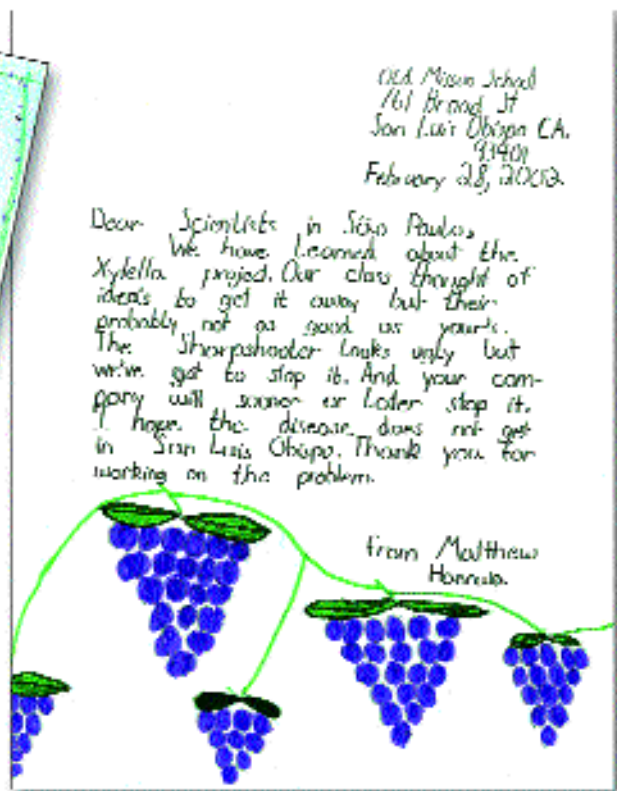 Old Mission School
761 Broad St
San Luis Obispo CA.
93401
February 28, 2002
Dear Scientists in São Paulo,
We have Learned about the
Xylella project. Our class thought of
idea's to get it away but their
probably not as good as your's.
The Sharpshooter Looks ugly but
we've got to stop it. And your com-
pany will sooner or Later stop it.
I hope the disease does not get
in San Luis Obispo. Thank you for
working on the problem.
from Matthew